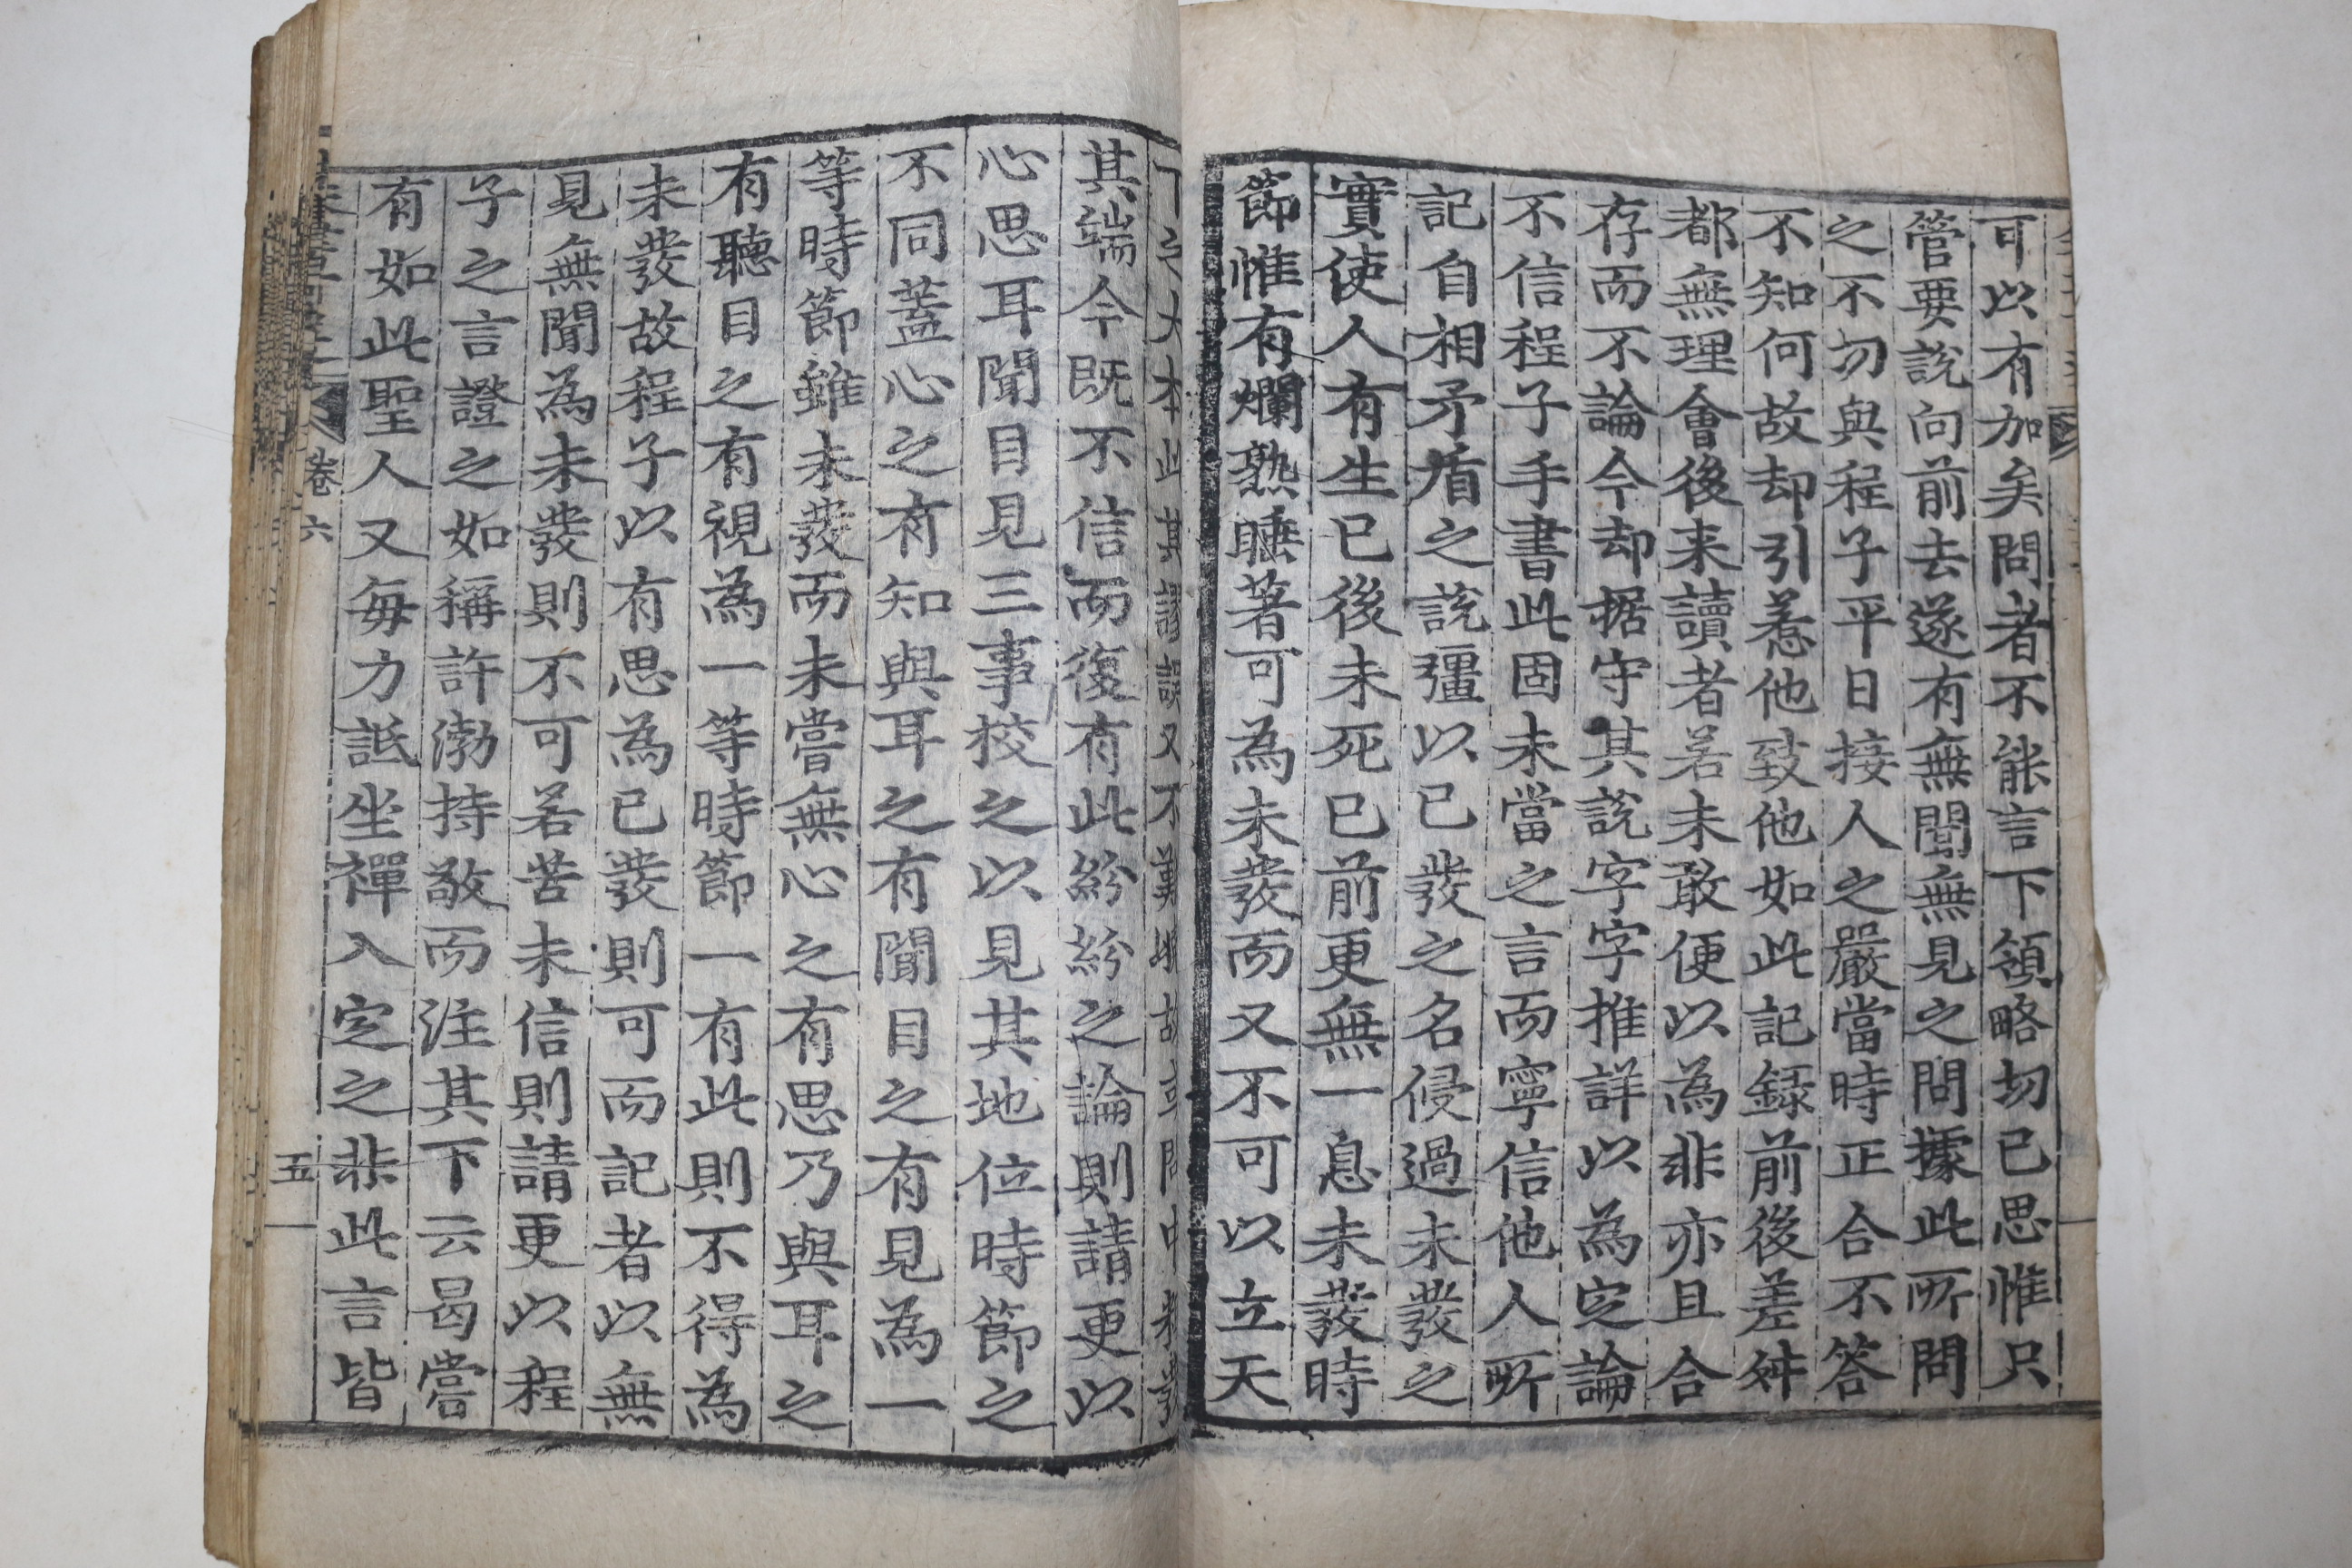 可以有加矣問者不能言下領略切己思惟只
管要說向前去遂有無聞無見之問據此所問
之不切與程子平日接人之嚴當時正合不答
不知何故却引惹他致他如此記錄前後差舛
都無理會後来讀者若未敢便以為非亦且合
存而不論今却据守其說字字推詳以為定論
不信程子手書此固未當之言而寧信他人所
記自相矛盾之說彊以已發之名侵過未發之
實使人有生已後未死已前更無一息未發時
節惟有爛熟睡著可為未發而又不可以立天
下之大本此其謬誤又不難
其端今既不信而復有此紛紛之論則請更以
心思耳聞目見三事校之以見其地位時節之
不同蓋心之有知與耳之有聞目之有見為一
等時節雖未發而未嘗無心之有思乃與耳之
有聽目之有視為一等時節一有此則不得為
未發故程子以有思為已發則可而記者以無
見無聞為未發則不可若苦未信則請更以程
子之言證之如稱許渤持敬而注其下云曷嘗
有如此聖人又每力詆坐禪入定之非此言皆
卷六
五